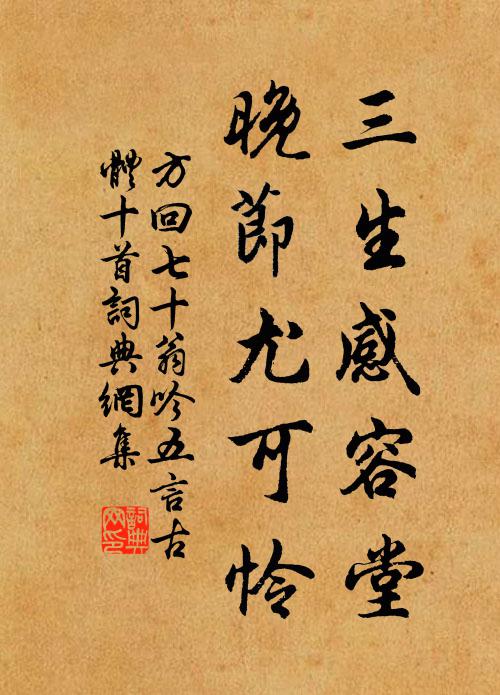 三生感容堂
晚節尤可怜
方回七十翁吟五言古
體十首詞典網集